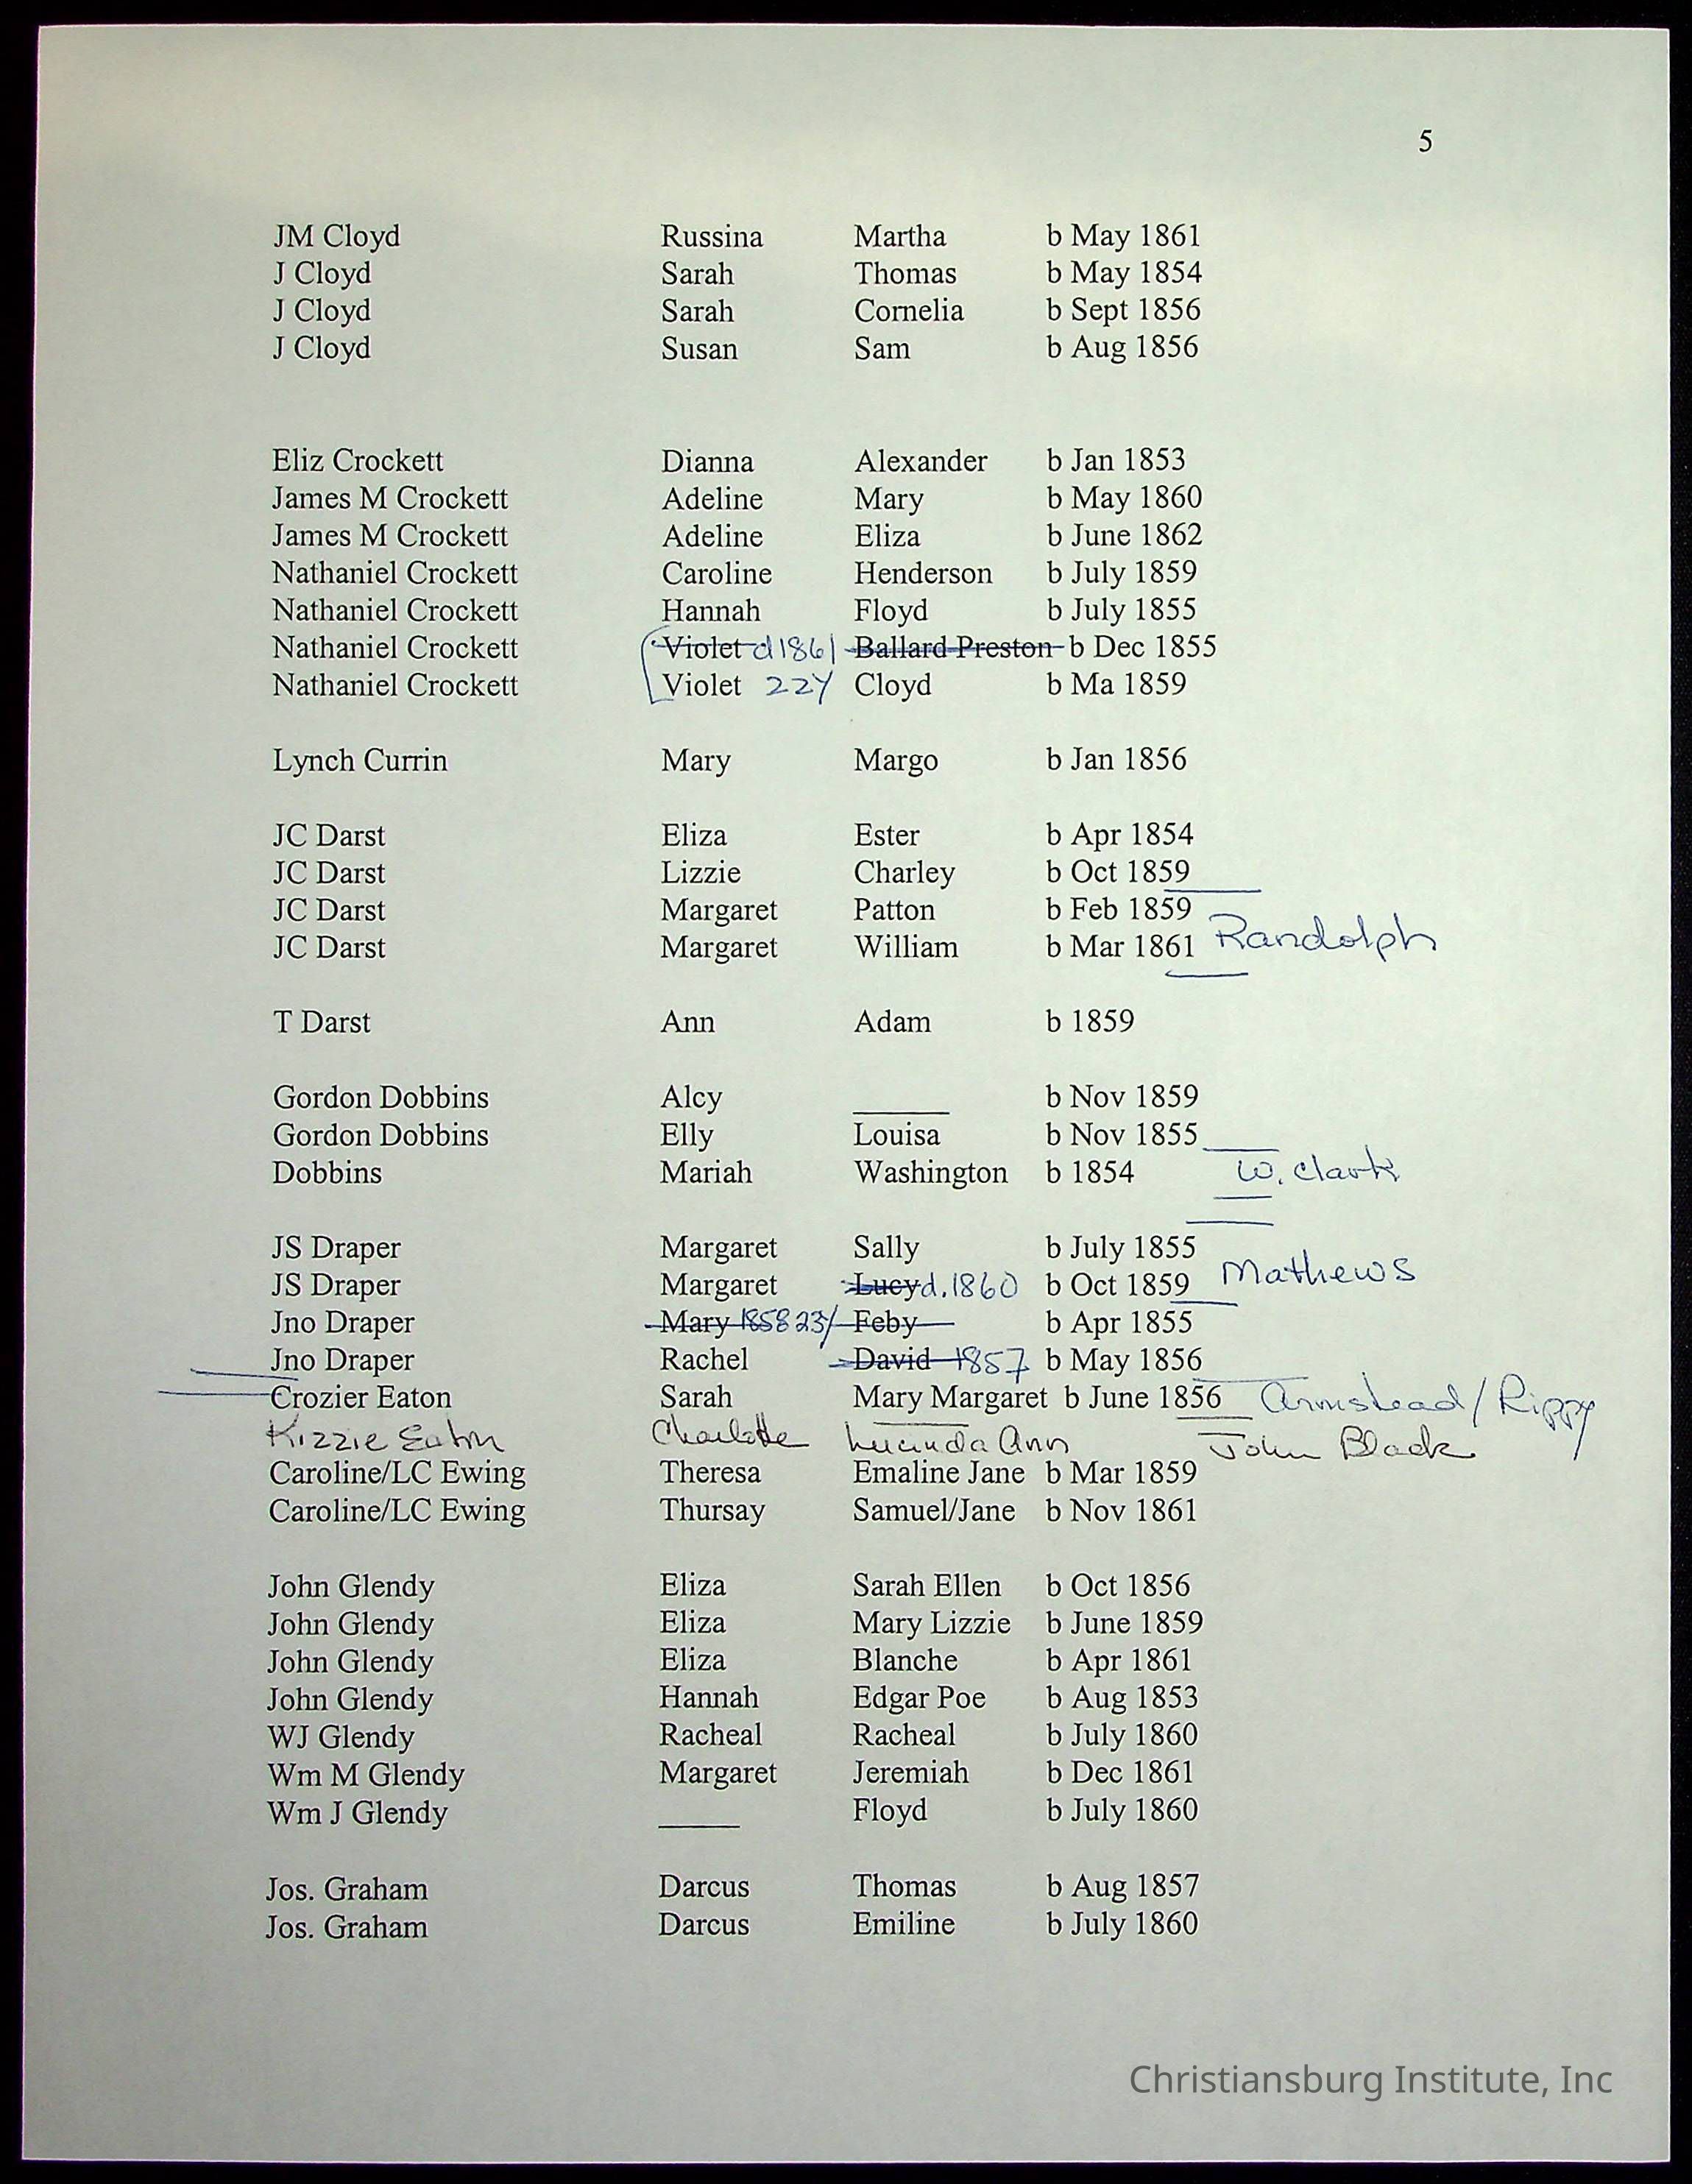 5
JM Cloyd Russina Martha b May 1861
J Cloyd Sarah Thomas b May 1854
J Cloyd Sarah Cornelia b Sept 1856
J Cloyd Susan Sam b Aug 1856
Eliz Crockett Dianna Alexander b Jan 1853
James M Crockett Adeline Mary b May 1860
James M Crockett Adeline Eliza b June 1862
Nathaniel Crockett Caroline Henderson b July 1859
Nathaniel Crockett Hannah Floyd b July 1855
Nathaniel Crockett Violet d 1861 Ballard Preston b Dec 1855
Nathaniel Crockett Violet 22y Cloyd b Ma 1859
Lynch Currin Mary Margo b Jan 1856
JC Darst Eliza Ester b Apr 1854
JC Darst Lizzie Charley b Oct 1859
JC Darst Margaret Patton b Feb 1859
JC Darst Margaret William b Mar 1861 Randolph
T Darst Ann Adam b 1859
Gordon Dobbins Alcy ______ b Nov 1859
Gordon Dobbins Elly Louisa b Nov 1855
Dobbins Mariah Washington b 1854 W. Clark
JS Draper Margaret Sally b July 1855
JS Draper Margaret Lucy d. 1860 b Oct 1859 Mathews
Jno Draper Mary 1858 23/ Feby b Apr 1855
Jno Draper Rachel David 1857 b May 1856
Crozier Eaton Sarah Mary Margaret b June 1856 Armstead/Rippy
Kizzie Eaton Charlotte Lucinda Ann John Black
Caroline/LC Ewing Theresa Emaline Jane b Mar 1859
Caroline/LC Ewing Thursay Samuel/Jane b Nov 1861
John Glendy Eliza Sarah Ellen b Oct 1856
John Glendy Eliza Mary Lizzie b June 1859
John Glendy Eliza Blanche b Apr 1861
John Glendy Hannah Edgar Poe b Aug 1853
WJ Glendy Racheal Racheal b July 1860
Wm M Glendy Margaret Jeremiah b Dec 1861
Wm J Glendy _____ Floyd b July 1860
Jos. Graham Darcus Thomas b Aug 1857
Jos. Graham Darcus Emiline b July 1860
Christiansburg Institute, Inc